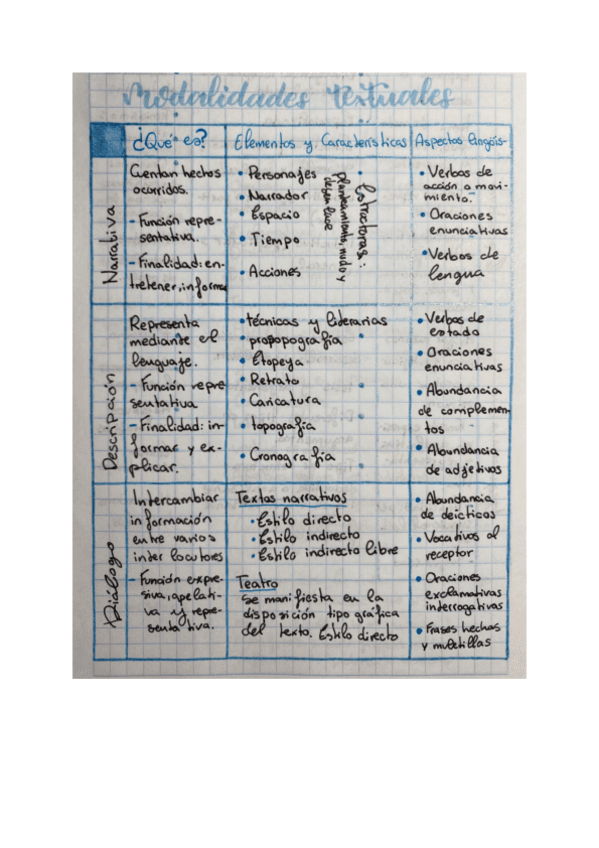 Modalidades textuales
¿Qué es?
Elementos y Características
Aspectos lingüís-
Narrativa
Cuentan hechos
ocurridos.
- Función repre-
sentativa.
- Finalidad: en-
tretener, informar
• Personajes
• Narrador
• Espacio
• Tiempo
• Acciones
• Estructuras:
planteamiento, nudo y
desenlace
• Verbos de
acción o movi-
miento.
• Oraciones
enunciativas
• Verbos de
lengua
Descripción
Representa
mediante el
lenguaje.
- Función repre
sentativa
- Finalidad: in-
formar y ex-
plicar.
• técnicas y literarias
• propopografía
• Etopeya
• Retrato
• Caricatura
• topografía
• Cronografía
• Verbos de
estado
• Oraciones
enunciativas
• Abundancia
de complemen-
tos
• Abundancia
de adjetivos
Diálogo
Intercambiar
información
entre varios
interlocutores
- Función expre-
siva, apelati-
va y repre-
sentativa.
Textos narrativos
• Estilo directo
• Estilo indirecto
• Estilo indirecto libre
Teatro
se manifiesta en la
disposición tipográfica
del texto. Estilo directo
• Abundancia
de deícticos
• Vocativos al
receptor
• Oraciones
exclamativas
interrogativas
• Frases hechas
y muletillas